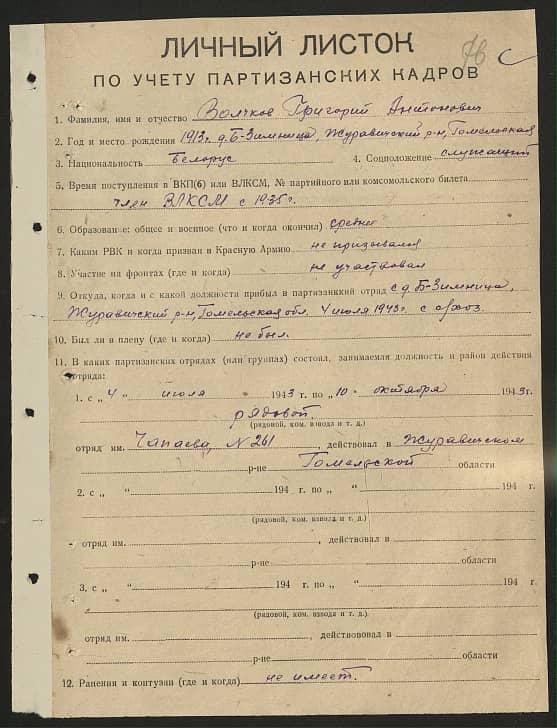 76
ЛИЧНЫЙ ЛИСТОК
ПО УЧЕТУ ПАРТИЗАНСКИХ КАДРОВ
1. Фамилия, имя и отчество Волчков Григорий Антонович
2. Год и место рождения 1913 г. д. Б-Зимница, Журавичский р-н, Гомельская
3. Национальность Белорус 4. Соцположение служащий
5. Время поступления в ВКП(б) или ВЛКСМ, № партийного или комсомольского билета
член ВЛКСМ с 1935 г.
6. Образование: общее и военное (что и когда окончил) среднее
7. Каким РВК и когда призван в Красную Армию не призывался
8. Участие на фронтах (где и когда) не участвовал
9. Откуда, когда и с какой должности прибыл в партизанский отряд с д. Б-Зимница,
Журавичский р-н, Гомельская обл. 4 июля 1943 г. с
10. Был ли в плену (где и когда) не был.
11. В каких партизанских отрядах (или группах) состоял, занимаемая должность и район действия
отряда:
1. с „4“ июля 1943 г. по „10“ октября 1943 г.
рядовой.
(рядовой, ком. взвода и т. д.)
отряд им. Чапаева, N 261, действовал в Журавичском
р-не Гомельской области
2. с „ “ 194 г. по „ “ 194 г.
(рядовой, ком. взвода и т. д.)
отряд им. , действовал в
р-не области
3. с „ “ 194 г. по „ “ 194 г.
(рядовой, ком. взвода и т. д.)
отряд им. , действововал в
р-не области
12. Ранения и контузии (где и когда) не имеет.